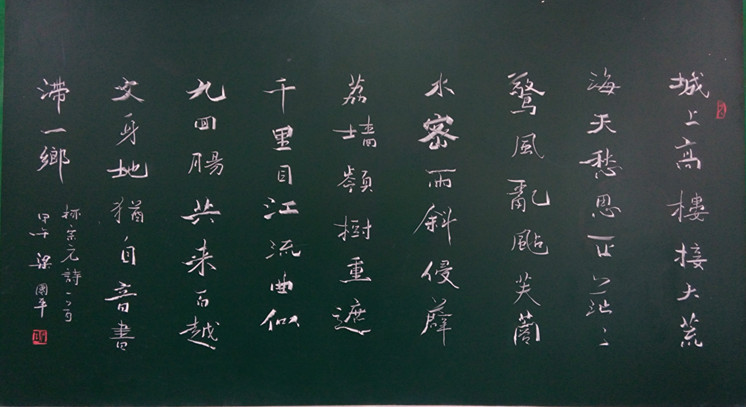 城上高樓接大荒
海天愁思正茫々
驚風亂颭芙蓉
水密雨斜侵薜
荔墻嶺樹重遮
千里目江流曲似
九回腸共來百越
文身地猶自音書
滯一鄉
柳宗元詩一首
甲午 梁國平